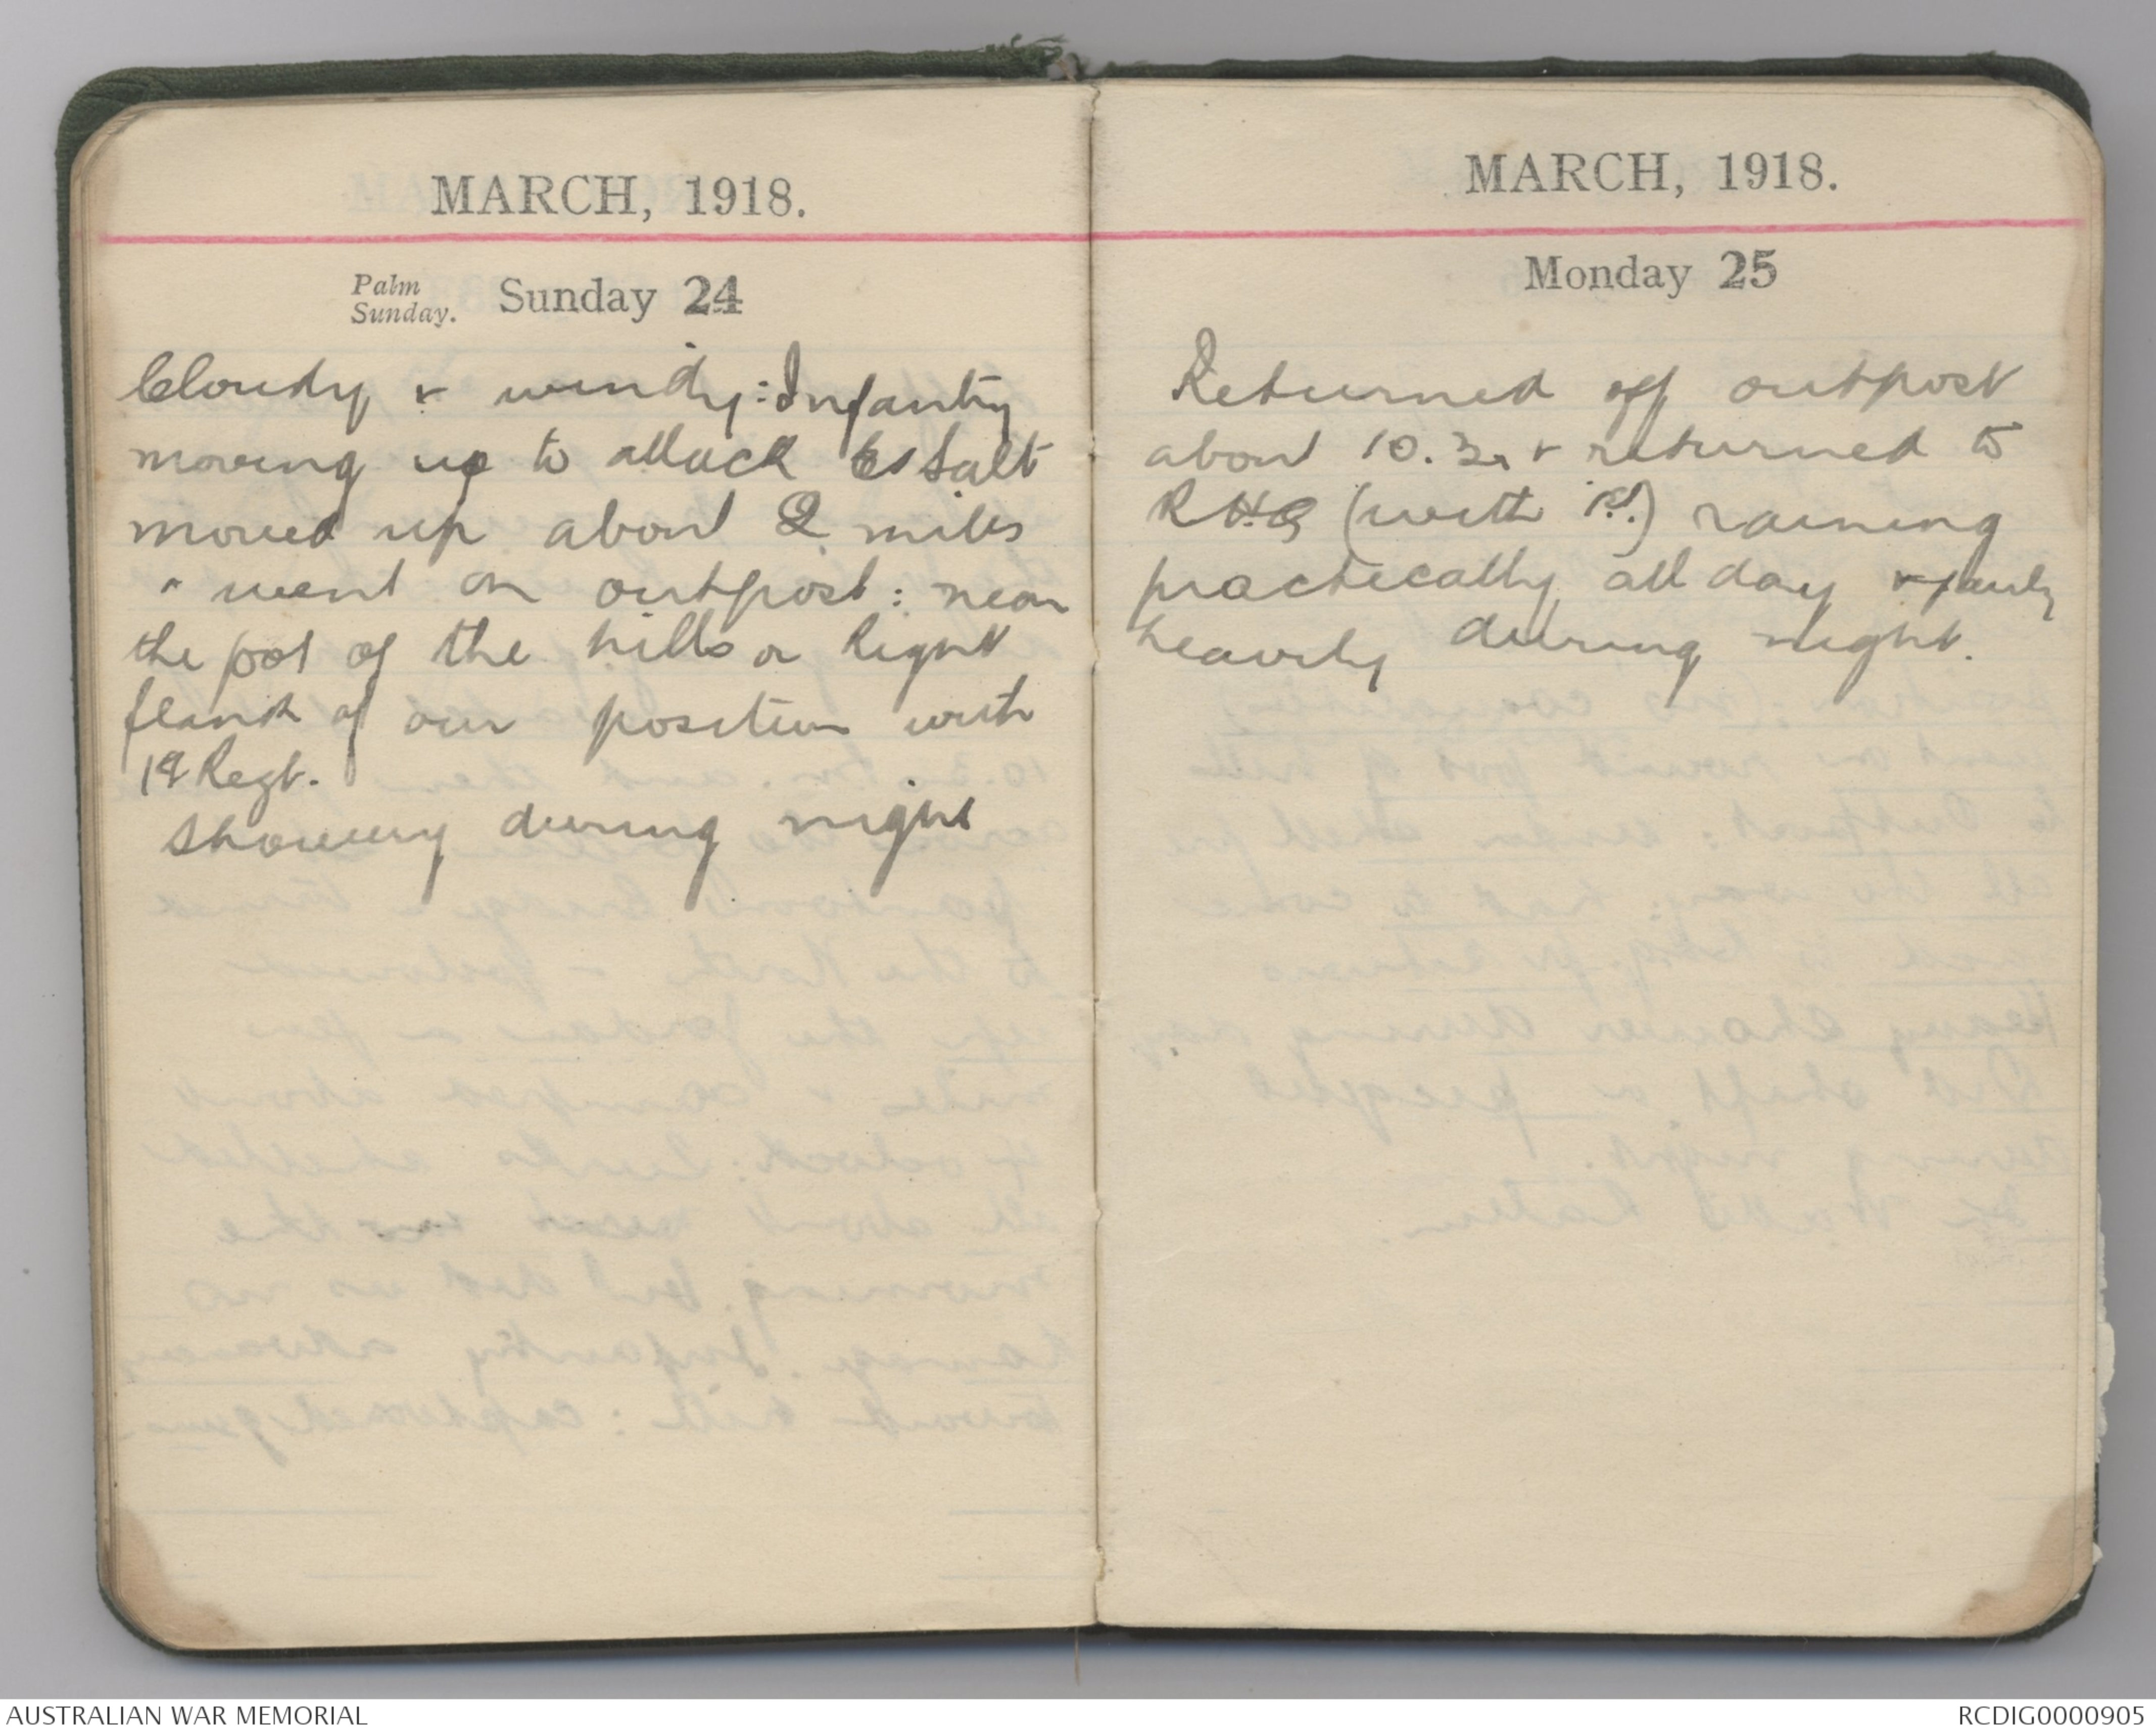 MARCH, 1918.
Palm
Sunday. Sunday 24
Cloudy & windy: Infantry
moving up to attack Es Salt
moved up about 2 miles
& went on outpost: near
the foot of the hills on Right
flank of our position with
1st Regt.
Showery during night
MARCH, 1918.
Monday 25
Returned off outpost
about 10.30 & returned to
RHQ (with ) raining
practically all day & fairly
heavily during night.
AUSTRALIAN WAR MEMORIAL
RCDIG0000905